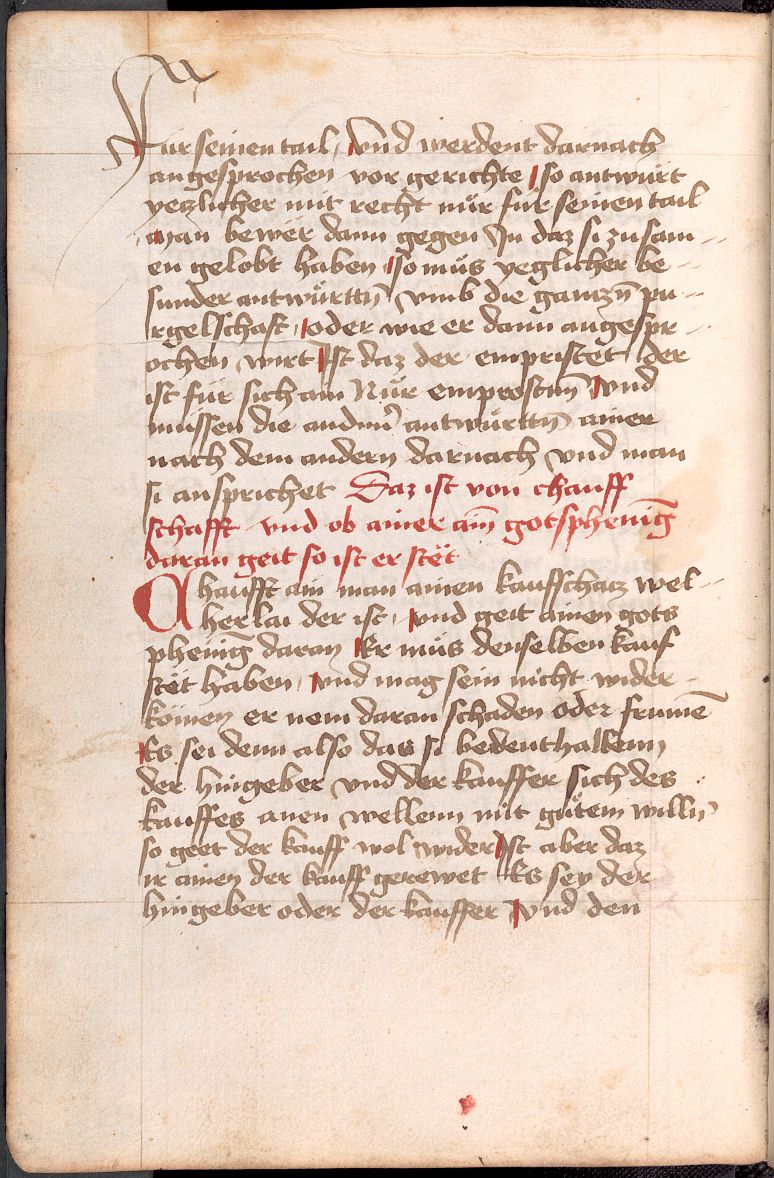 Fur seinen tail / Vnd werdent darnach
angesprochen vor gerichte / so antwürt
yezlicher mit recht nür für seinen tail
Man bewër dann gegen In daz si zusam -
en gelobt haben / so müs yeglicher be -
sunder antwürttn̄ vmb die gantzn̄ pu -
rgelschaft / oder wie er dann angespr -
ochen wirt Ist daz der empristet der
ist für sich ain Nür emprostnn̄ vnd
müssen die andn̄ antwürttn̄ ainer
nach dem andern darnach vnd man
si ansprichet Daz ist von chauff
schafft vnd ob ainer ain̄ gotspheni̅g
daran geit so ist er stët
Chaufft ain man ainen kauffschacz wel -
herlai der ist / vnd geit ainen gots
phenīg daran Er müs denselben kauf
stët haben / vnd mag sein nicht wider -
kömen er nem daran schaden oder frumē
Es sei denn also das si bedenthalbenn
der hingeber vnd der kauffer sich des
kauffes anen wellenn mit gütem willn̄
so geet der kauff wol wider Ist aber daz
ir ainen der kauff gerewet Es sey der
hingeber oder der kauffer / Vnd den